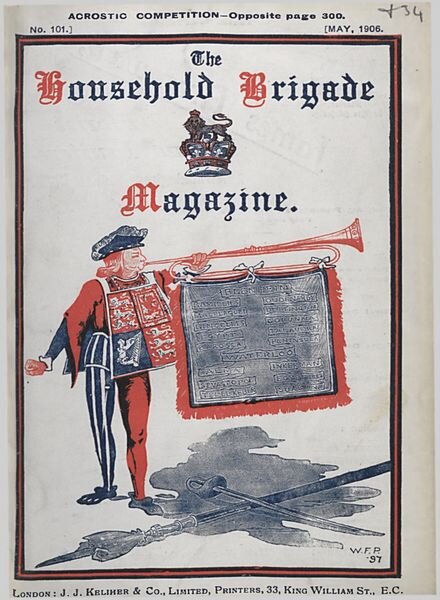 ACROSTIC COMPETITION—Opposite page 300.
434
No. 101.]
[MAY, 1906.
The
Household Brigade
Magazine.
WATERLOO
INKERMAN
W.F.P.
-97
LONDON: J. J. KELIHER & CO., LIMITED, PRINTERS, 33, KING WILLIAM ST., E.C.